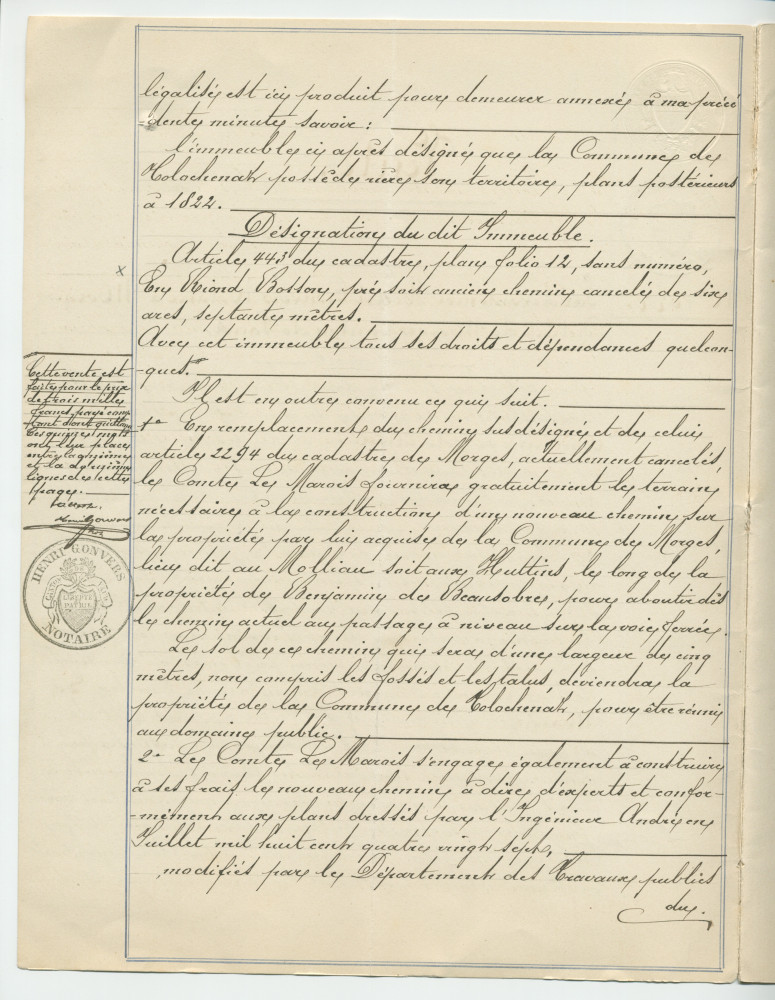 légalisé est ici produit pour demeurer annexé à ma précé
-dente minute savoir :
l'immeuble ci après désigné que la Commune de
Tolochenaz possède rière son territoire, plans postérieurs
à 1822.
Désignation du dit Immeuble.
Article 443 du cadastre, plan folio 12, sans numéro,
En Riond Bosson, pré soit ancien chemin cancelé de six
ares, septante mètres.
Avec cet immeuble tous ses droits et dépendances quelcon-
-ques.
Il est en outre convenu ce qui suit.
1o En remplacement du chemin susdésigné et de celui
article 2294 du cadastre de Morges, actuellement cancelés,
le Comte Le Marois fournira gratuitement le terrain
nécessaire à la construction d'un nouveau chemin sur
la propriété par lui acquise de la Commune de Morges,
lieu dit au Molliau soit aux Huttins, le long de la
propriété de Benjamin de Beausobre, pour aboutir dès
le chemin actuel au passage à niveau sur la voie ferrée.
Le sol de ce chemin qui sera d'une largeur de cinq
mètres, non compris les fossés et les talus, deviendra la
propriété de la Commune de Tolochenaz, pour être réuni
au domaine public.
2o Le Comte Le Marois s'engage également à construire
à ses frais le nouveau chemin à dire d'experts et confor-
-mément aux plans dressés par l'Ingénieur André en
Juillet mil huit cent quatre vingt sept,
modifiés par le Département des Travaux publics
du.
x
Cette vente est
faite pour le prix
de trois mille
francs, payé comp
tant dont quittance
Ces quinze mots
ont leur place
entre la onzième
et la douzième
lignes de cette
page.
l'atteste,
Henri Gonvers
not.
HENRI GONVERS
NOTAIRE
LIBERTÉ ET PATRIE